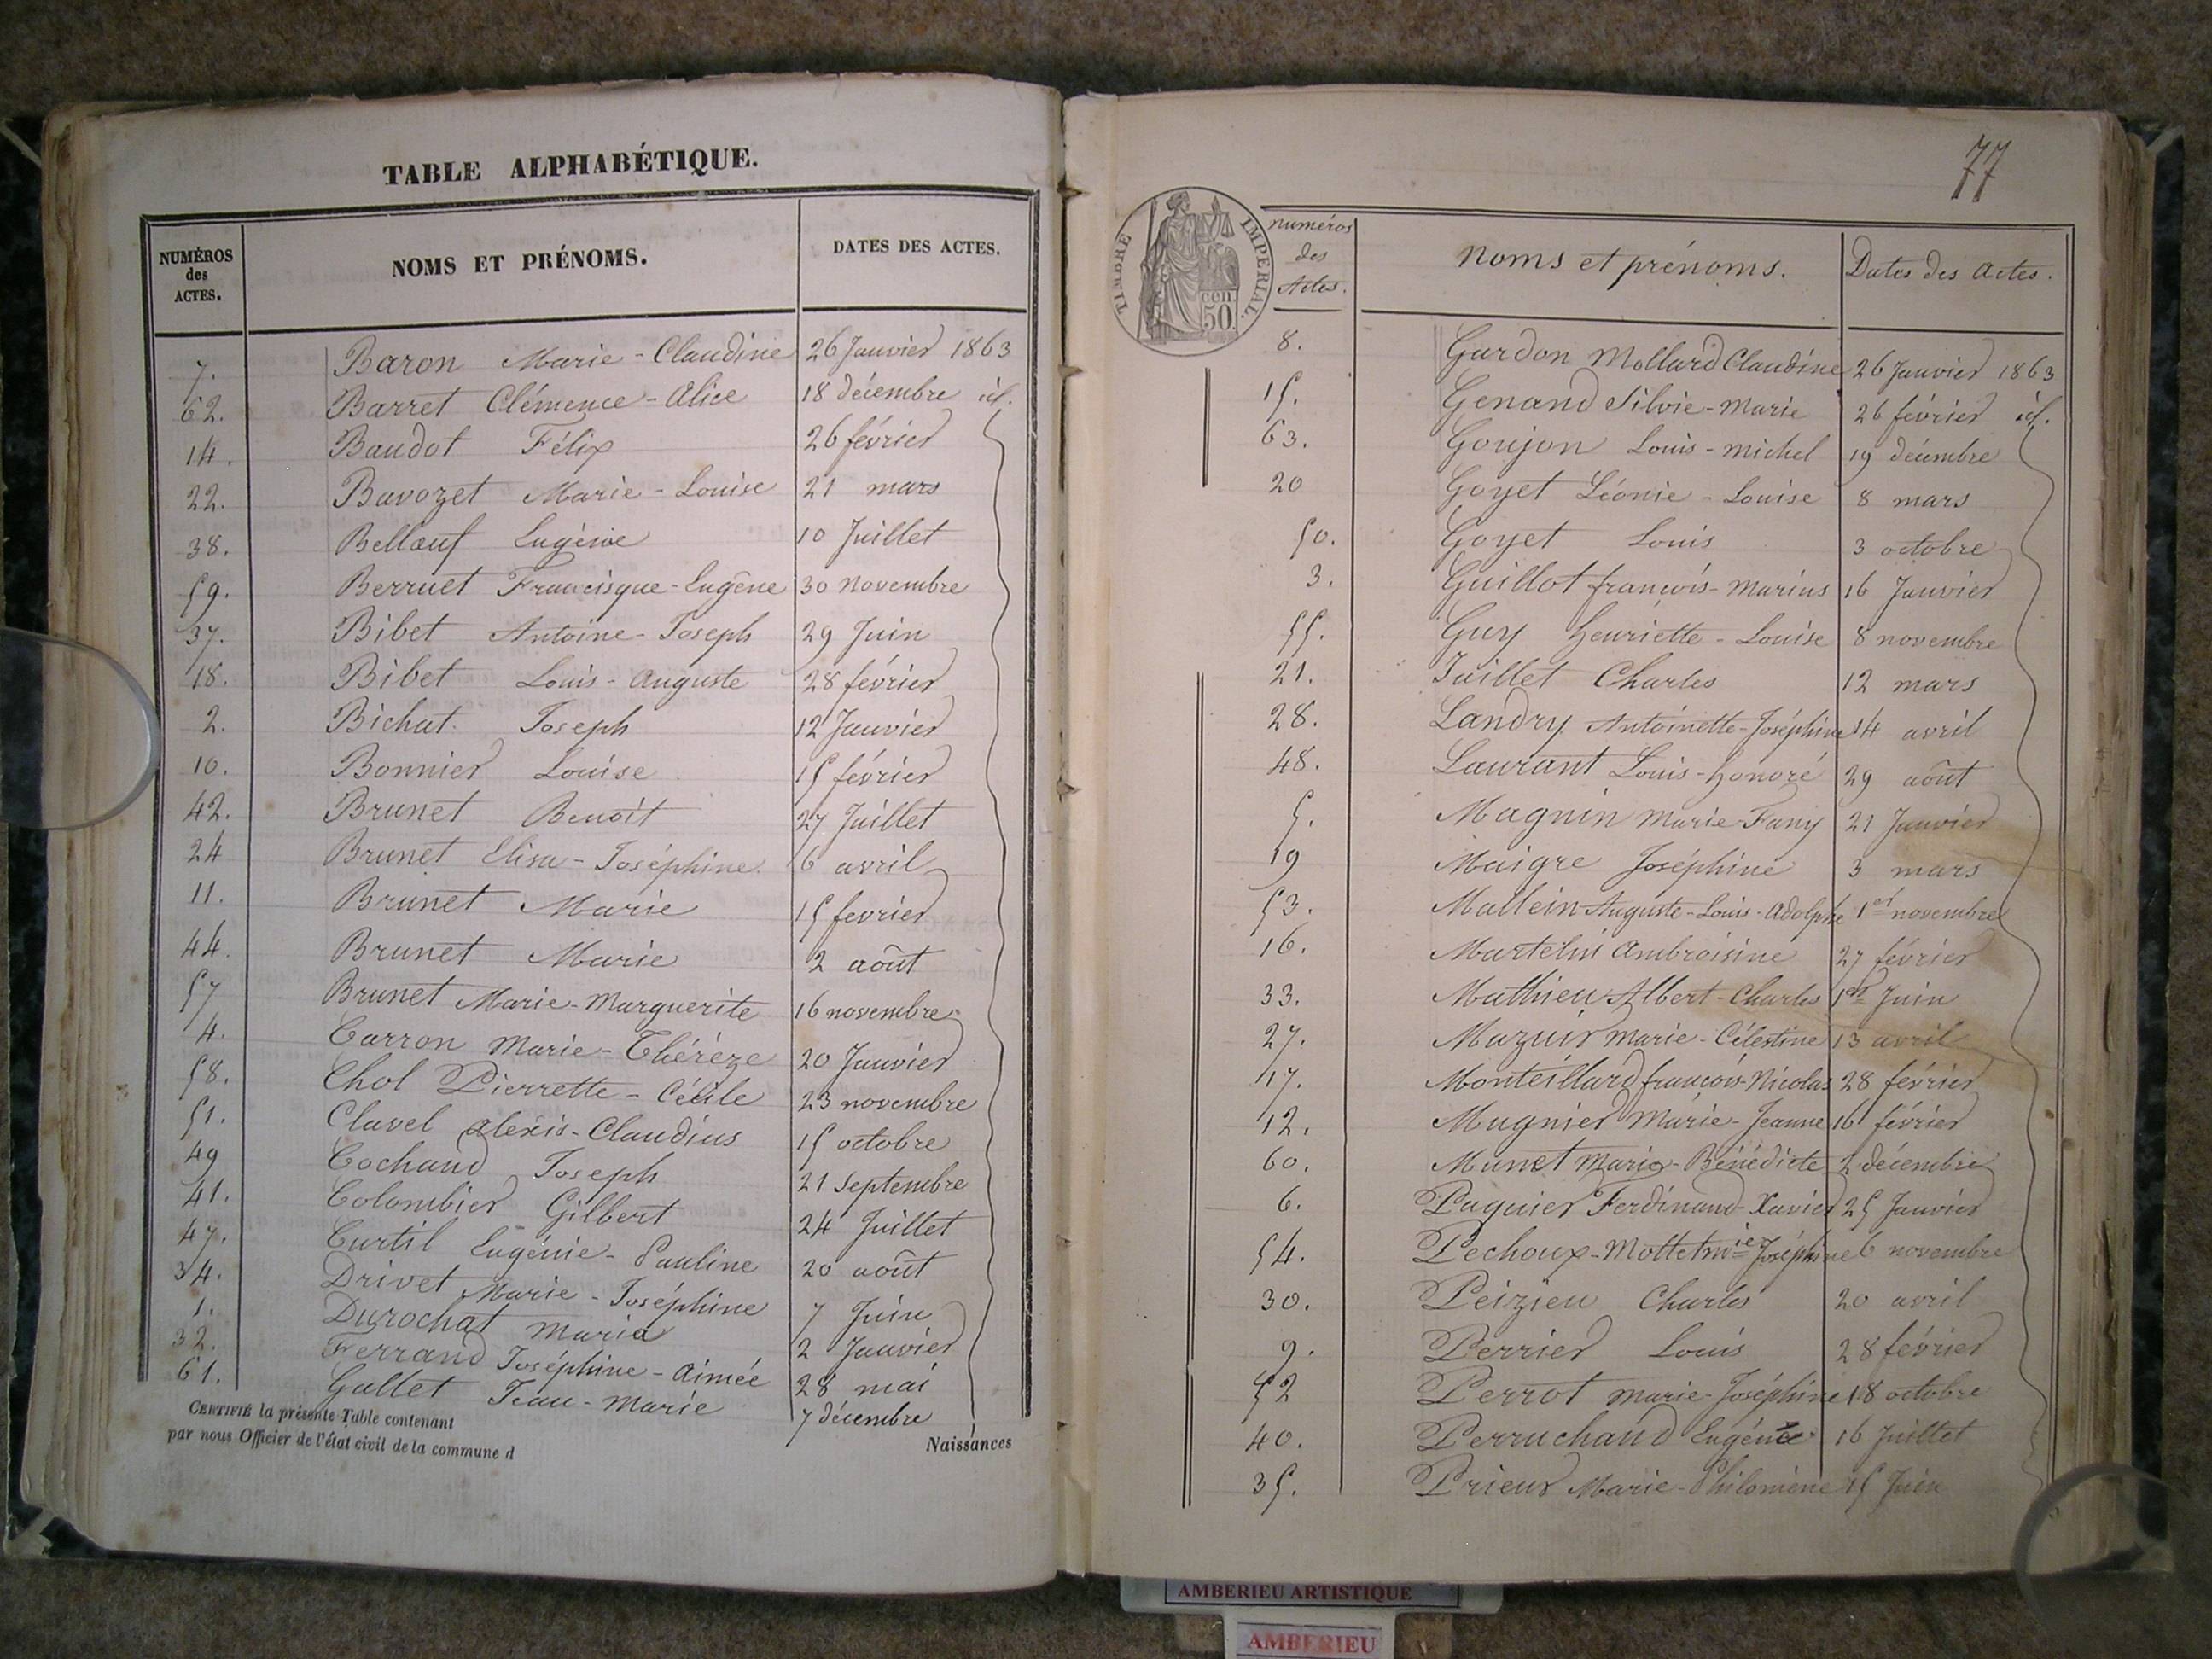 TABLE ALPHABÉTIQUE.
NUMÉROS des ACTES. NOMS ET PRÉNOMS. DATES DES ACTES.
7. Baron Marie-Claudine 26 Janvier 1863
62. Barret Clémence-Alice 18 décembre id.
14. Baudot Félix 26 février
22. Bavozet Marie-Louise 21 mars
38. Bellœuf Eugénie 10 Juillet
59. Berruet Francisque-Eugène 30 novembre
37. Bibet Antoine-Joseph 29 Juin
18. Bibet Louis-Auguste 28 février
2. Bichat Joseph 12 Janvier
10. Bonnier Louise 15 février
42. Brunet Benoît 27 Juillet
24 Brunet Elisa-Joséphine 6 avril
11. Brunet Marie 15 fevrier
44. Brunet Marie 2 août
57 Brunet Marie-Marguerite 16 novembre
4. Carron Marie-Thérèze 20 Janvier
58. Chol Pierrette-Cécile 23 novembre
51. Clavel Alexis-Claudius 15 octobre
49 Cochand Joseph 21 septembre
41. Colombier Gilbert 24 Juillet
47. Curtil Eugénie-Pauline 20 août
34. Drivet Marie-Joséphine 7 Juin
1. Durochat Maria 2 Janvier
32. Ferrand Joséphine-Aimée 28 mai
61. Gallet Jean-Marie 7 décembre
CERTIFIÉ la présente Table contenant Naissances
par nous Officier de l'état civil de la commune d
77
TIMBRE IMPERIAL.
cen. 50.
numéros des Actes. Noms et prénoms. Dates des Actes.
8. Gardon Mollard Claudine 26 Janvier 1863
15. Genand Silvie-Marie 26 février id.
63. Goujon Louis-Michel 19 décembre
20 Goyet Léonie-Louise 8 mars
50. Goyet Louis 3 octobre
3. Guillot françois-Marius 16 Janvier
55. Guy henriette-Louise 8 novembre
21. Juillet Charles 12 mars
28. Landry Antoinette-Joséphine 14 avril
48. Laurant Louis-honoré 29 août
5. Magnin Marie-Fany 21 Janvier
19 Maigre Joséphine 3 mars
53. Mallein Auguste-Louis-Adolphe 1er novembre
16. Martelin Ambroisine 27 février
33. Mathieu Albert-Charles 1er Juin
27. Mazuir Marie-Célestine 13 avril
17. Monteillard françois-Nicolas 28 février
12. Mugnier Marie-Jeanne 16 février
60. Munet Marie-Bénédicte 2 décembre
6. Paquier Ferdinand-Xavier 25 Janvier
54. Pechoux-Mottet mie Joséphine 6 novembre
30. Peizieu Charles 20 avril
9. Perrier Louis 28 février
52 Perrot Marie-Joséphine 18 octobre
40. Perruchaud Eugénie 16 Juillet
35. Prieur Marie-Philomène 15 Juin
AMBERIEU ARTISTIQUE
AMBERIEU